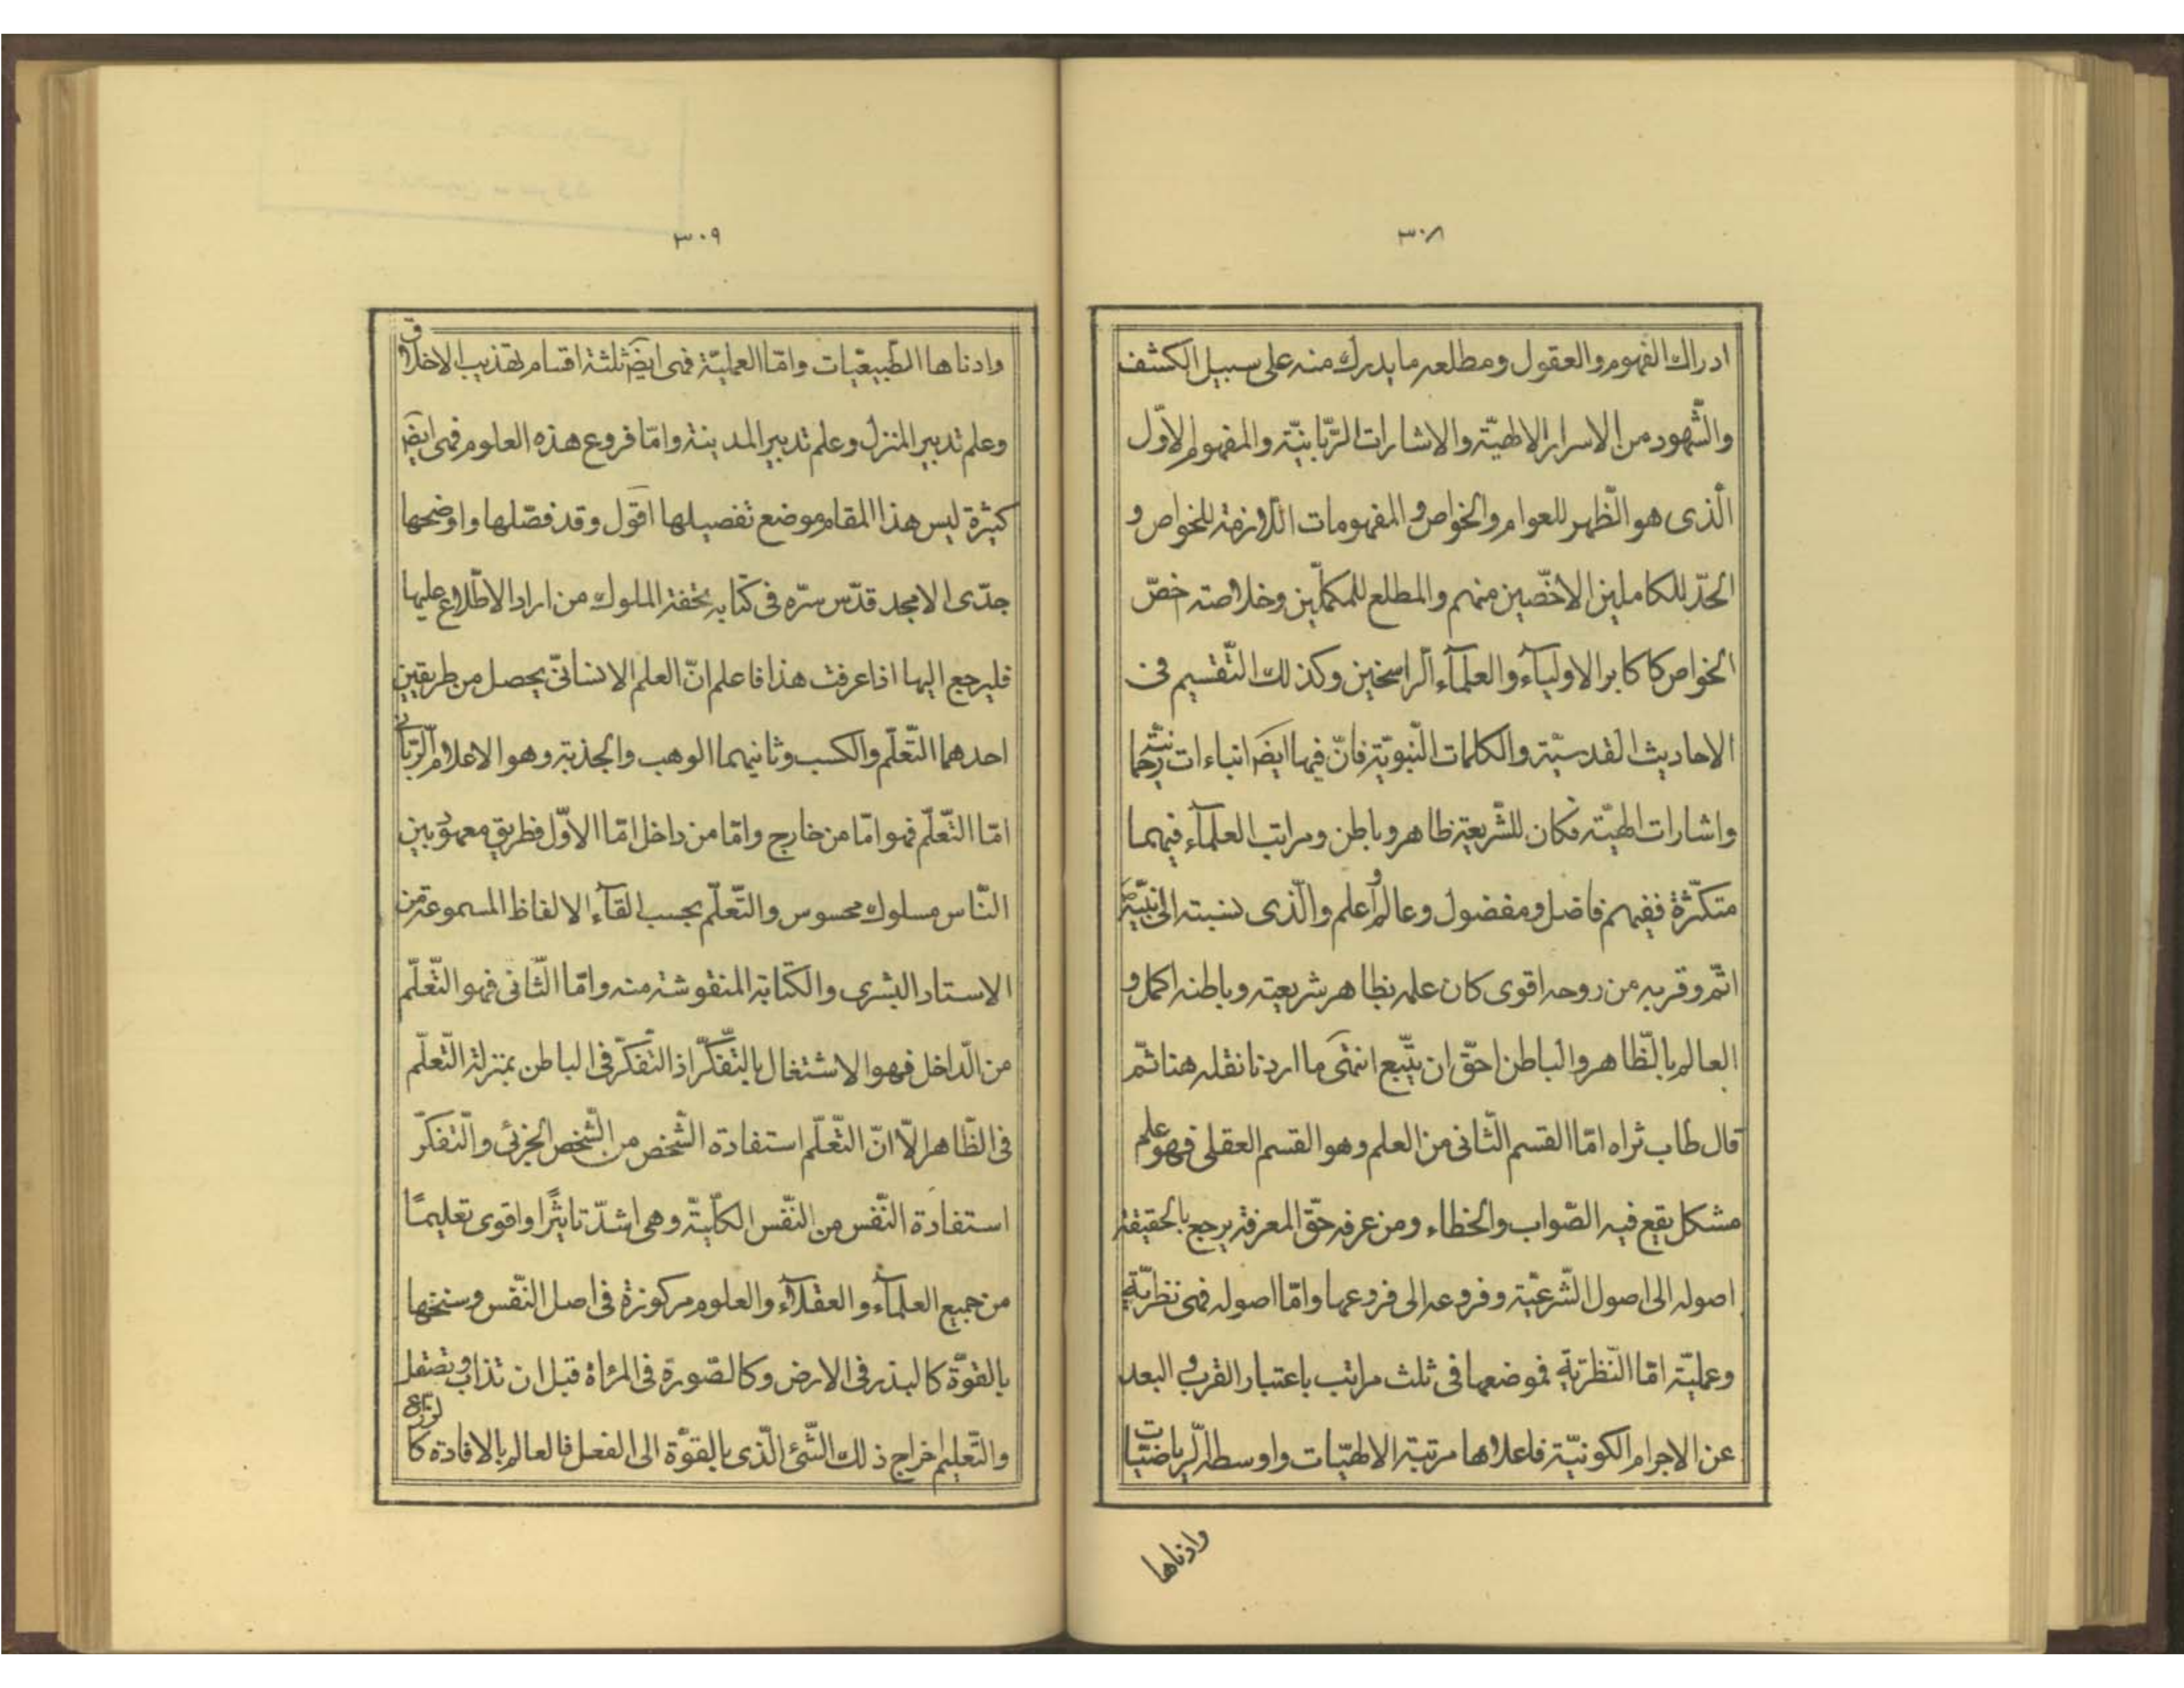 ٣٠٨
ادراك الفهوم والعقول ومطلعه ما يدرك منه على سبيل الكشف
والشّهود من الاسرار الالهيّة والاشارات الرّبّانيّة والمفهوم الاوّل
الّذى هو الظّهر للعوام والخواص والمفهومات اللازمة للخواص و
الحدّ للكاملين الاخصّين منهم والمطلع للمكملّين وخلاصته خصّ
الخواص كاكابر الاولياۤء والعلماۤء الراسخين وكذلك التّقسيم فى
الاحاديث القدسيّة والكلمات النّبويّة فانّ فيها ايضَ انباءات رحمانيّة
واشارات الهيّة فكان للشّريعة ظاهر وباطن ومراتب العلماۤء فيهما
متكثّرة ففيهم فاضل ومفضول وعالم واعلم والّذى نسبته الى نبيّهَ
اتمّ وقربه من روحه اقوى كان علمه بظاهر شريعته وباطنه اكمل و
العالم بالظّاهر والباطن احقّ ان يتّبع انتهى ما اردنا نقله هنا ثمّ
قال طاب ثراه امّا القسم الثّانى من العلم وهو القسم العقلى فهو علم
مشكل يقع فيه الصّواب والخطاء ومن عرفه حقّ المعرفة يرجع بالحقيقة
اصوله الى اصول الشّرعيّة وفروعه الى فروعها وامّا اصوله فهى نظريّة
وعمليّة امّا النّظريّة فموضعها فى ثلث مراتب باعتبار القرب و البعد
عن الاجرام الكونيّة فاعلاها مرتبة الالهيّات واوسطه الّرياضيّات
وادناها
٣٠٩
وادناها الطّبيعيّات وامّا العمليّة فهى ايضَ ثلثة اقسام تهذيب الاخلاق
وعلم تدبير المنزل وعلم تدبير المدينة وامّا فروع هذه العلوم فهى ايضَ
كثيرة ليس هذا المقام موضع تفصيلها اقول وقد فصّلها واوضحها
جدّى الامجد قدّس سرّه فى كتابه تحفة الملوك من اراد الاطّلاع عليها
فليرجع اليها اذا عرفت هذا فاعلم انّ العلم الانسانىّ يحصل من طريقين
احدهما التّعلّم والكسب وثانيهما الوهب والجذبة وهو الاعلام الرّبّانى
امّا التّعلّم فهو امّا من خارج وامّا من داخل امّا الاوّل فطريق معهود بين
النّاس مسلوك محسوس والتّعلّم بحسب القاۤء الالفاظ المسموعة من
الاستاد البشرى والكتابة المنقوشة منه وامّا الثّانى فهو التّعلّم
من الدّاخل فهو الاشتغال بالتّفكّر اذ التّفكّر فى الباطن بمنزلة التّعلّم
فى الظّاهر الّا انّ التّعلّم استفادة الشّخص من الشّخص الجزئى والتّفكّر
استفادة النّفس من النّفس الكلّيّة وهى اشدّ تاثيرًا واقوى تعليمًا
من جميع العلماۤء والعقلاۤء والعلوم مركوزة فى اصل النّفس وسنخها
بالقوّة كالبذر فى الارض وكالصّورة فى المرٰاة قبل ان تذاب وتصقل
والتّعليم اخراج ذلك الشّئ الّذى بالقوّة الى الفعل فالعالم بالافادة كالزّارع